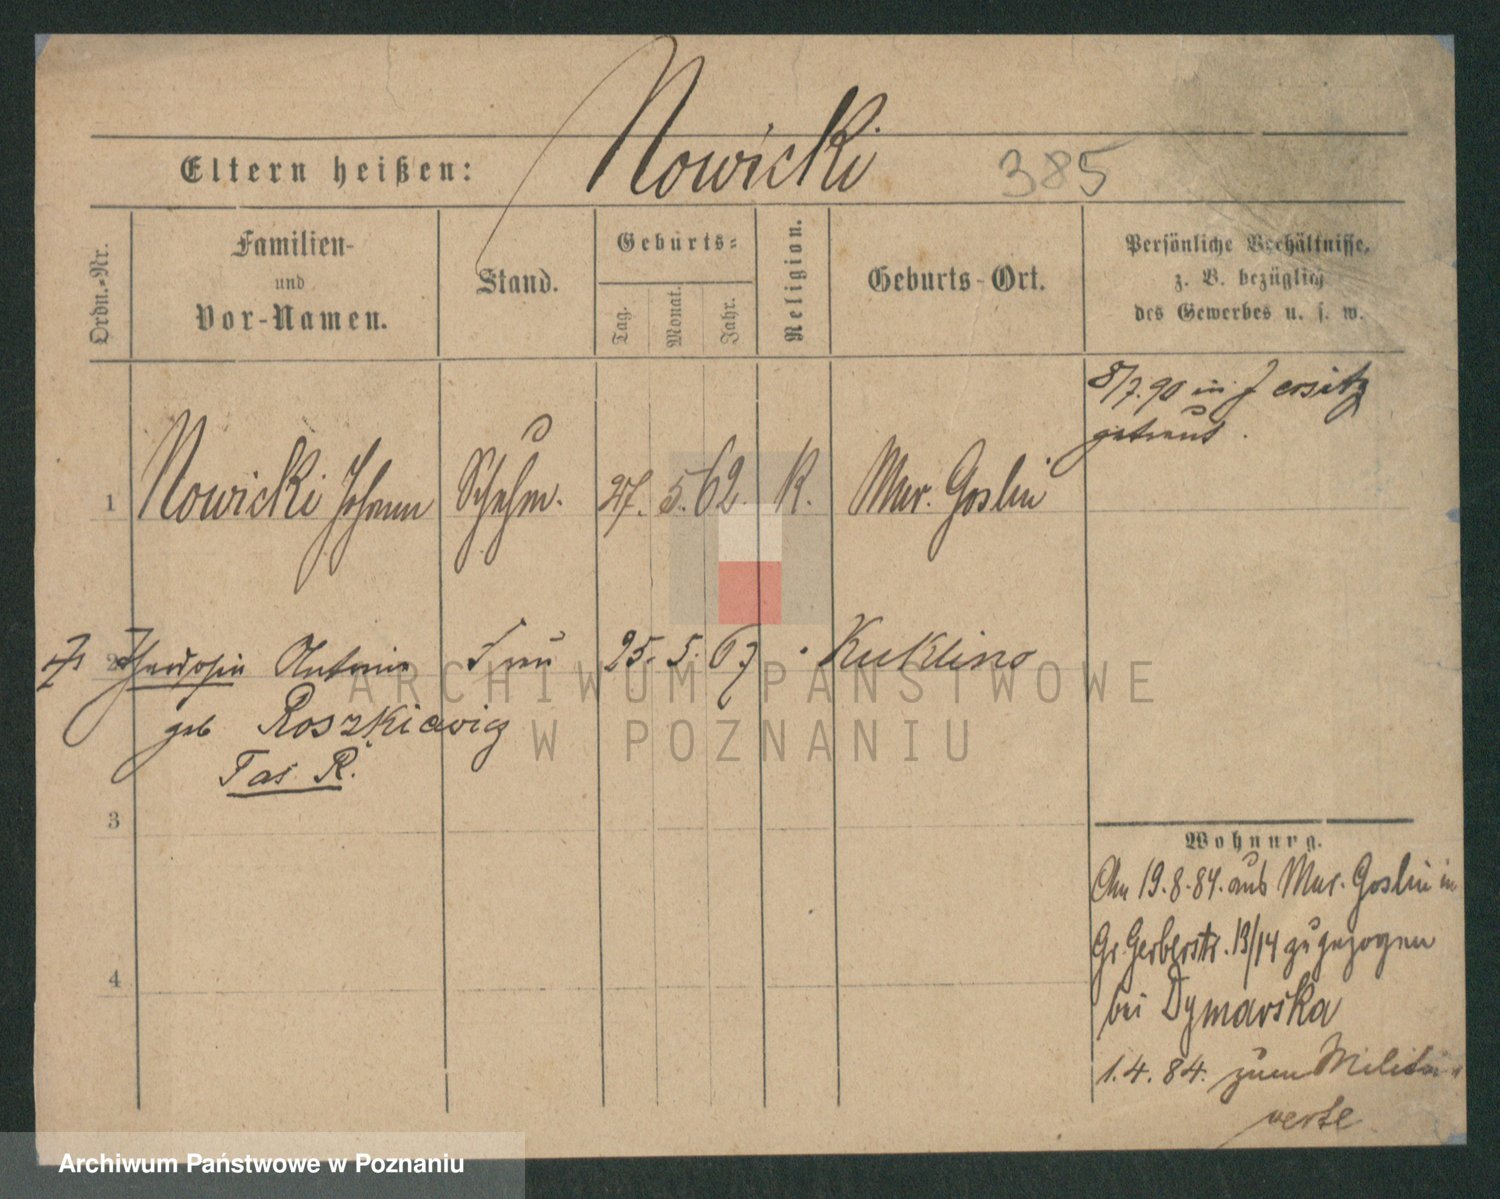 Nowicki
Eltern heißen:
385
Ordn.-Nr.
Familien-
und
Vor-Namen.
Stand.
Geburts-
Tag.
Monat.
Jahr.
Religion.
Geburts-Ort.
Persönliche Verhältnisse,
z. B. bezüglich
des Gewerbes u. s. w.
8/7.90 in Jersitz
getraut.
1 Nowicki Johann 27. 5. 62. K. Mur. Goslin
2 Antonie Frau 25. 5. 67 Kuklino
geb Roszkiewicz
R.
3
Wohnung.
Am 19.8.84. aus Mur. Goslin in
Gr. Gerberstr. 13/14 zugezogen
4
bei Dymarska
1.4.84. zum Militär
ARCHIWUM PAŃSTWOWE
W POZNANIU
Archiwum Państwowe w Poznaniu